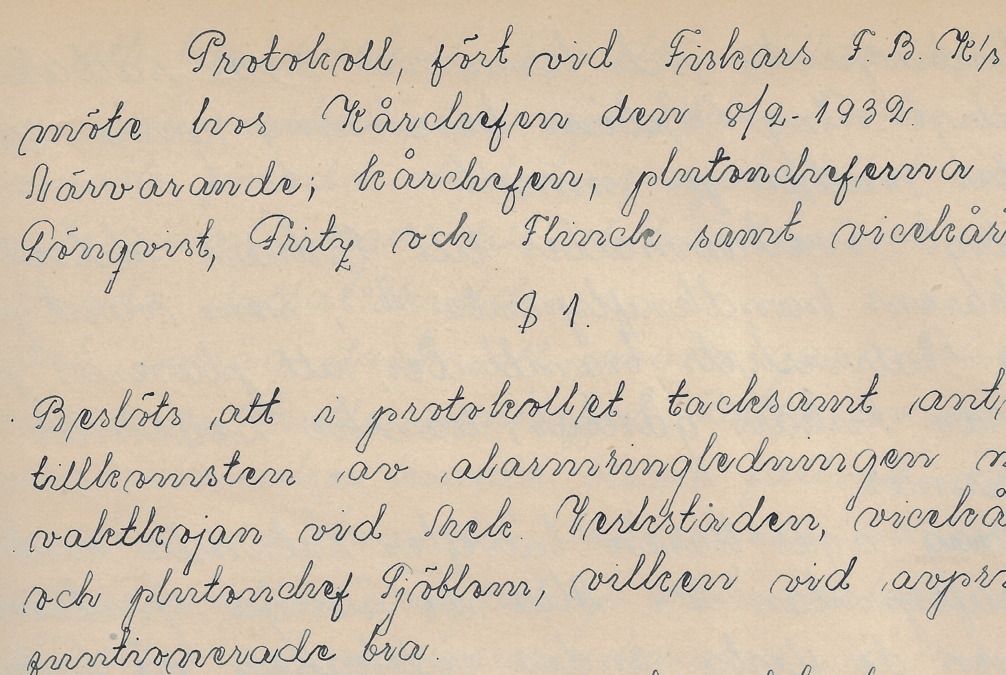 Protokoll, fört vid Fiskars F. B. K's
möte hos Kårchefen den 8/2-1932.
Närvarande; kårchefen, plutoncheferna
Lönqvist, Fritz och Flinck samt vicekår
§ 1.
Beslöts att i protokollet tacksamt ant
tillkomsten av alarmringledningen
vaktkojan vid Mek. Verkstaden, vicekå
och plutonchef Sjöblom, vilken vid avpr
funtionerade bra.